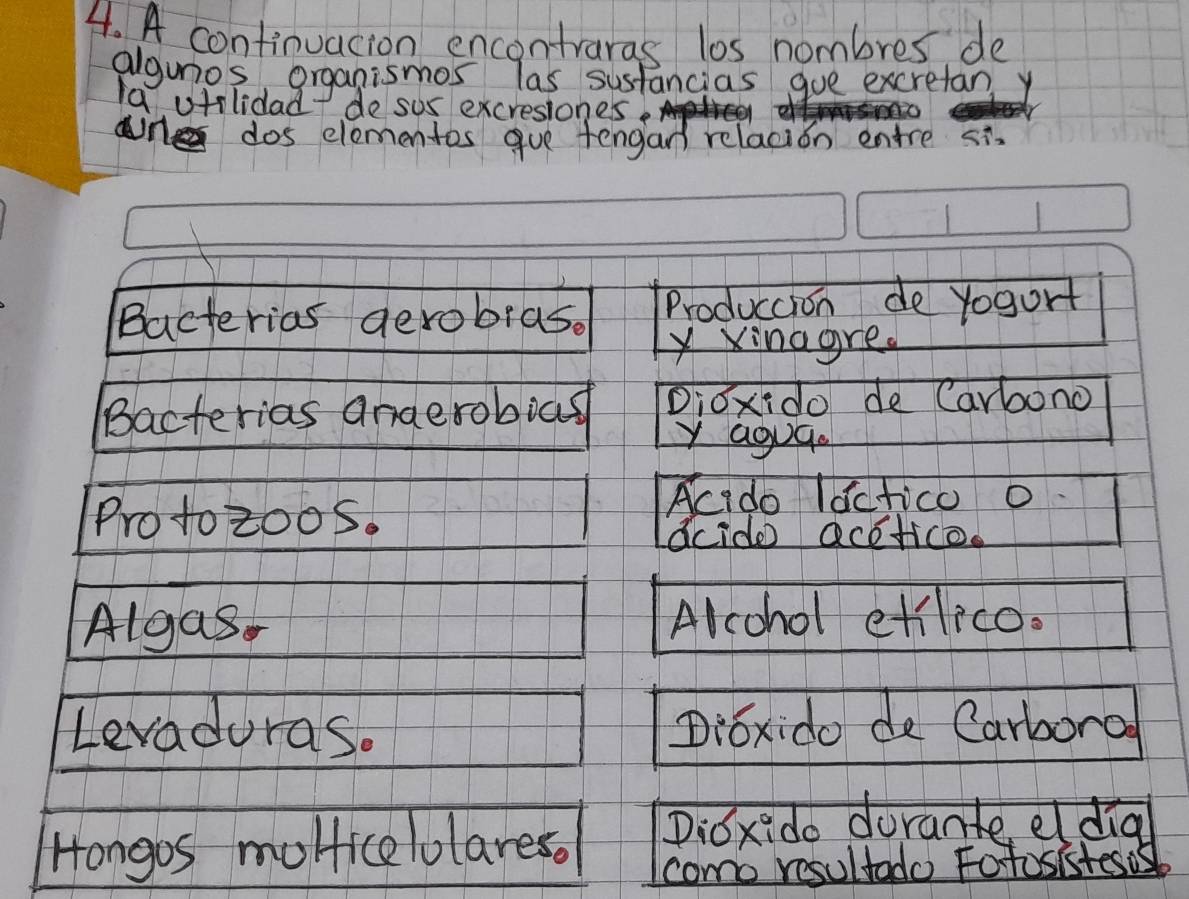 4. A continuacion encontraras los nombres de
algunos organismos las sustancias que excretan y
la utilidad de sus excresiones.
une dos elementos que tengan relación entre si.
Bacterias aerobias.
Producción de yogurt
y vinagre.
Bacterias anaerobias
Dióxido de Carbono
y agua.
Protozoos.
Ácido láctico o
ácido acético.
Algas.
Alcohol etílico.
Levaduras.
Dióxido de Carbono
Hongos multicelulares.
Dióxido durante el día
como resultado Fotosistesis.